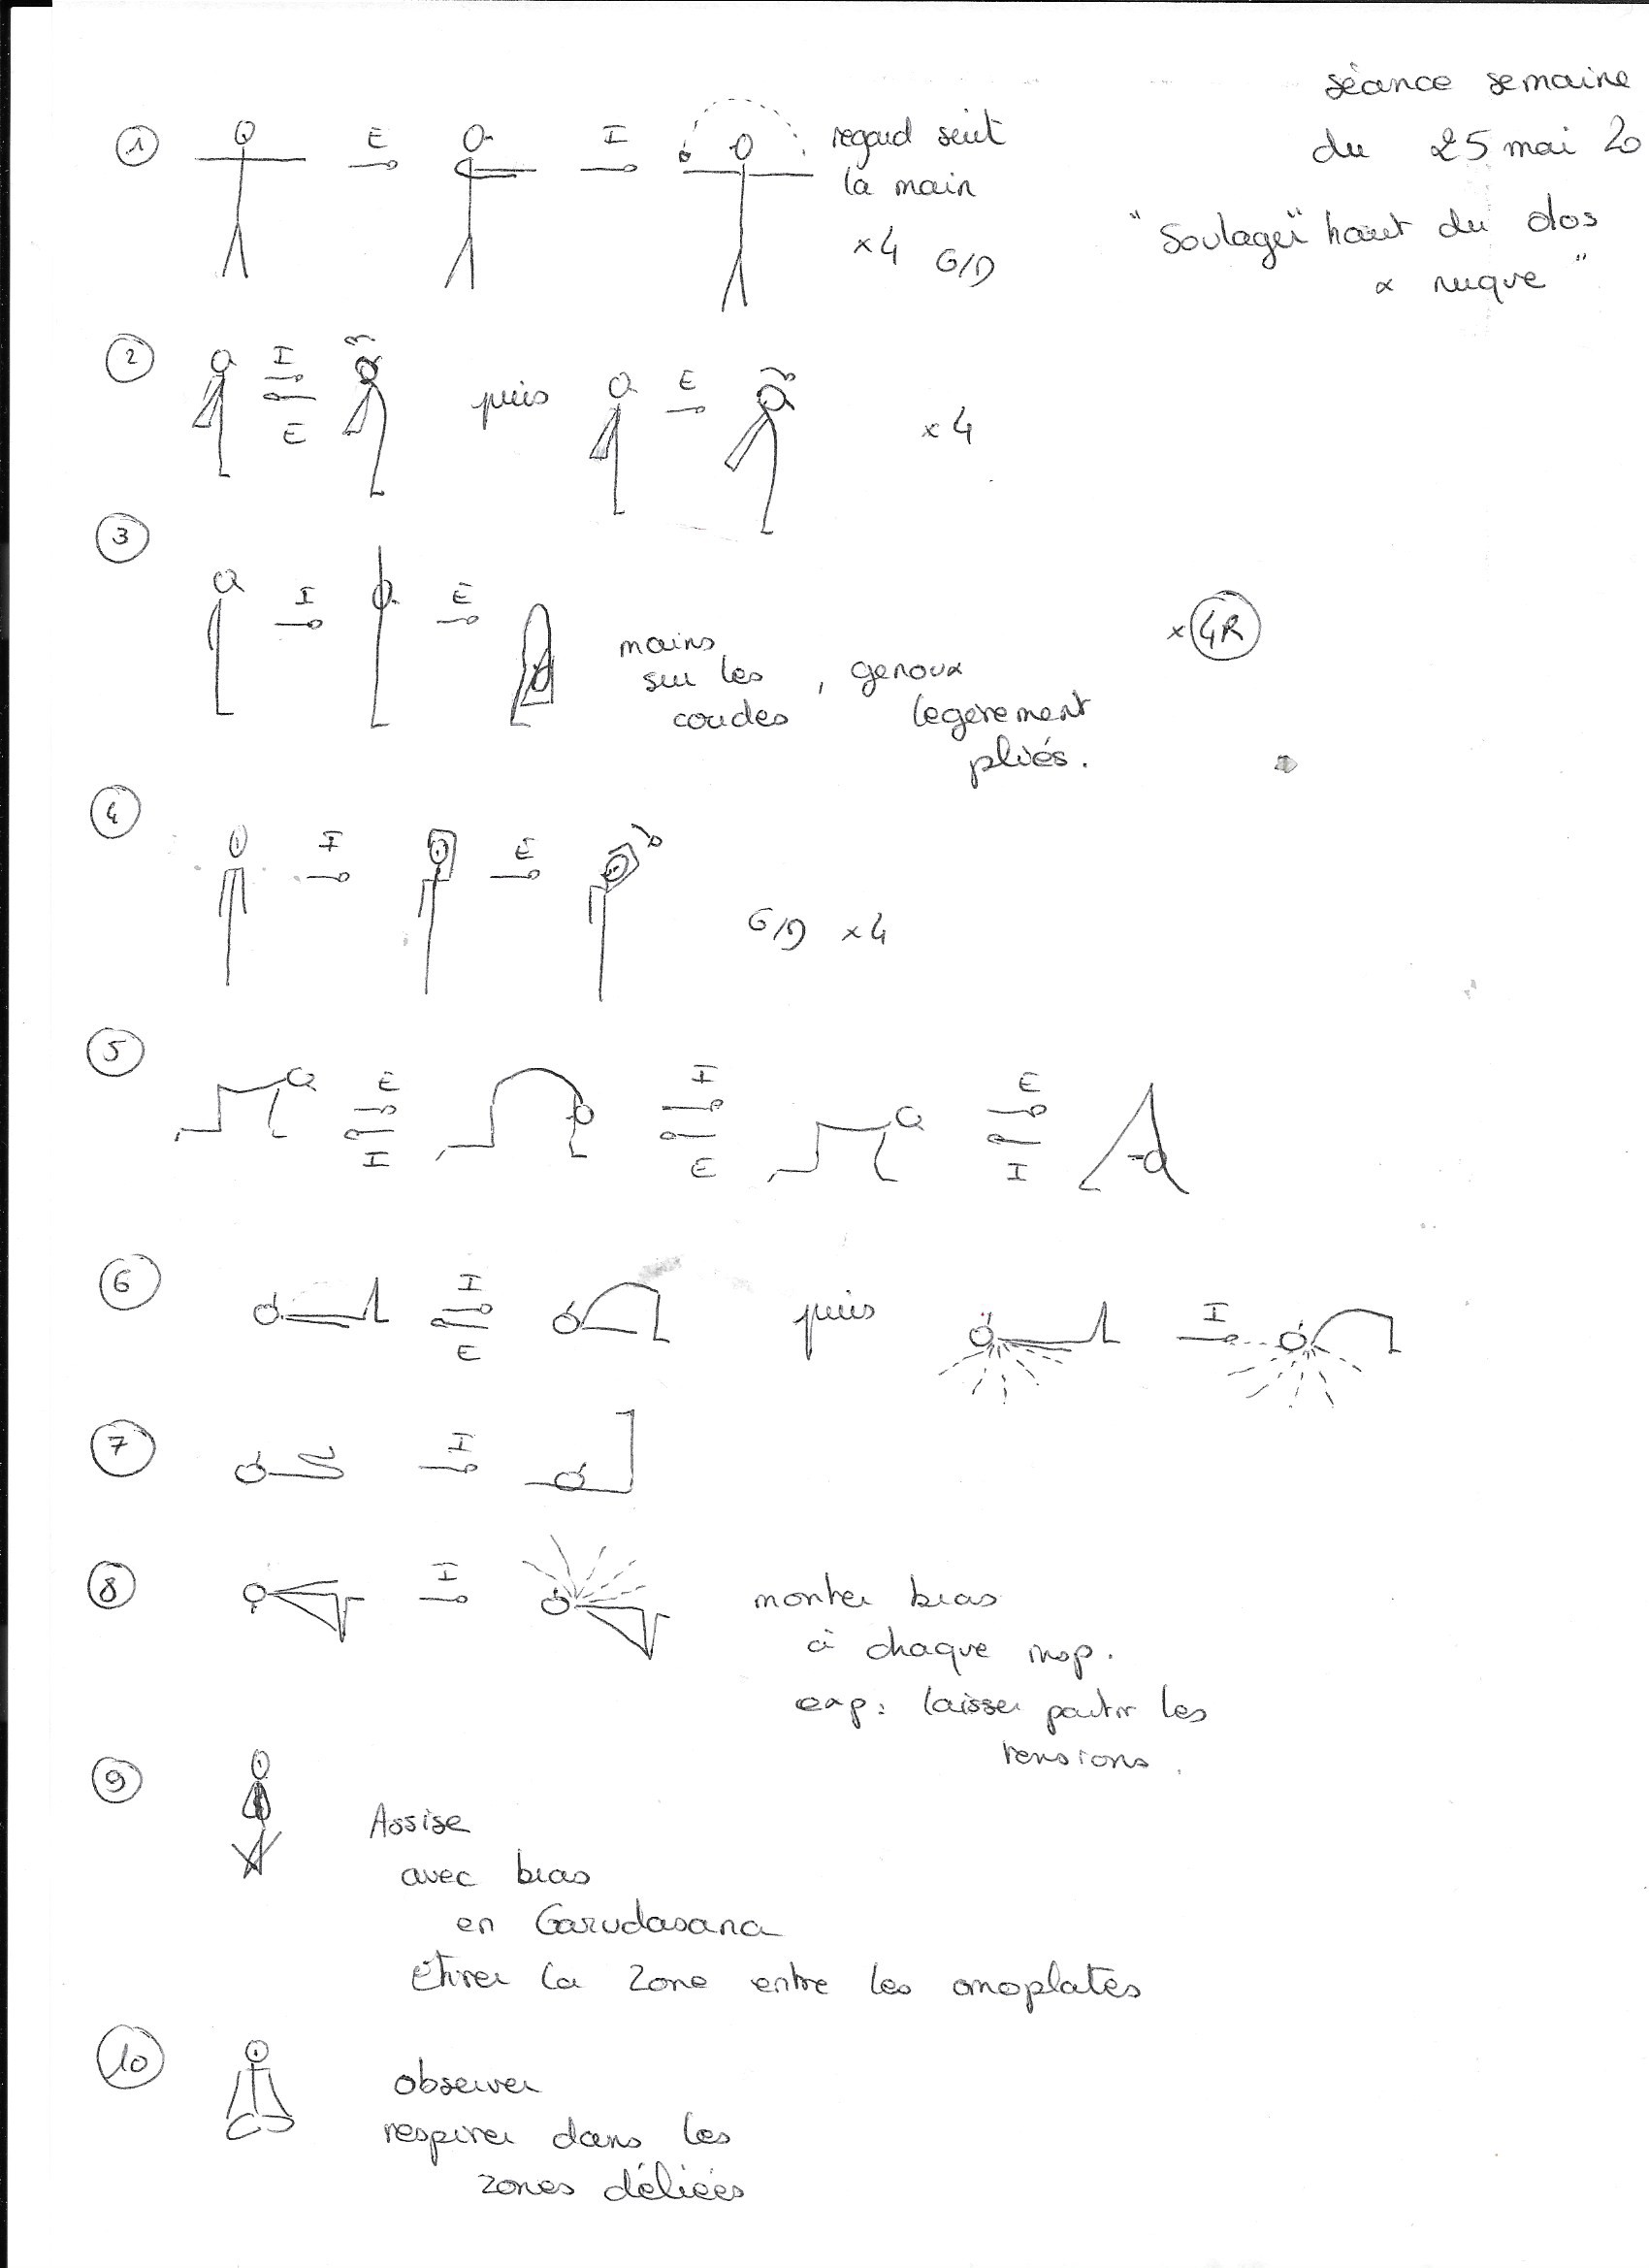 séance semaine
du 25 mai 20
"Soulager" haut du dos
& nuque"
1
E
I
regard suit
la main
x4 G/D
2
I
E
puis
E
x4
3
I
E
mains
sur les, genoux
coudes légèrement
pliés.
x 4R
4
I
E
G/D x4
5
E
I
I
E
E
I
6
I
E
puis
I
7
I
8
I
monter bras
à chaque insp.
exp: laisser partir les
tensions.
9
Assise
avec bras
en Garudasana
Etirer la zone entre les omoplates
10
observer
respirer dans les
zones déliées